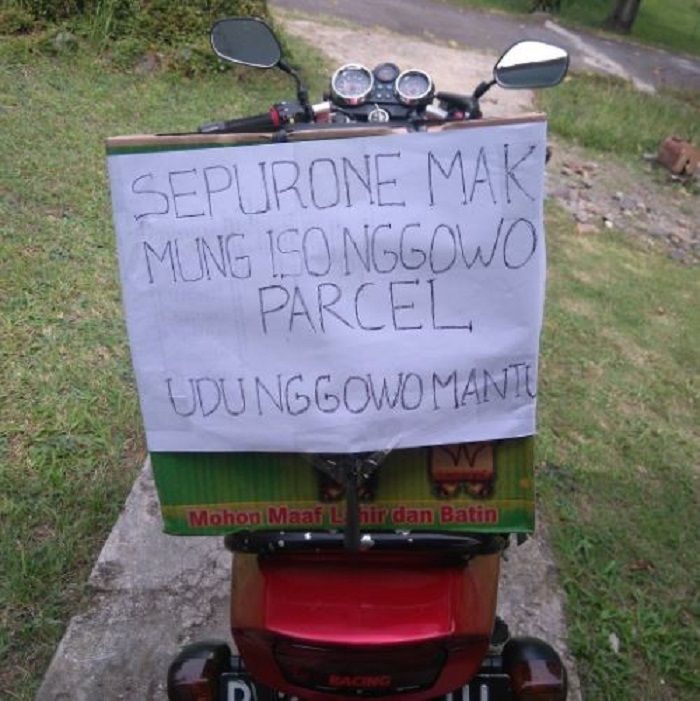 SEPURONE MAK
MUNG ISO NGGOWO
PARCEL
UDU NGGOWO MANTU
Mohon Maaf Lahir dan Batin
RACING